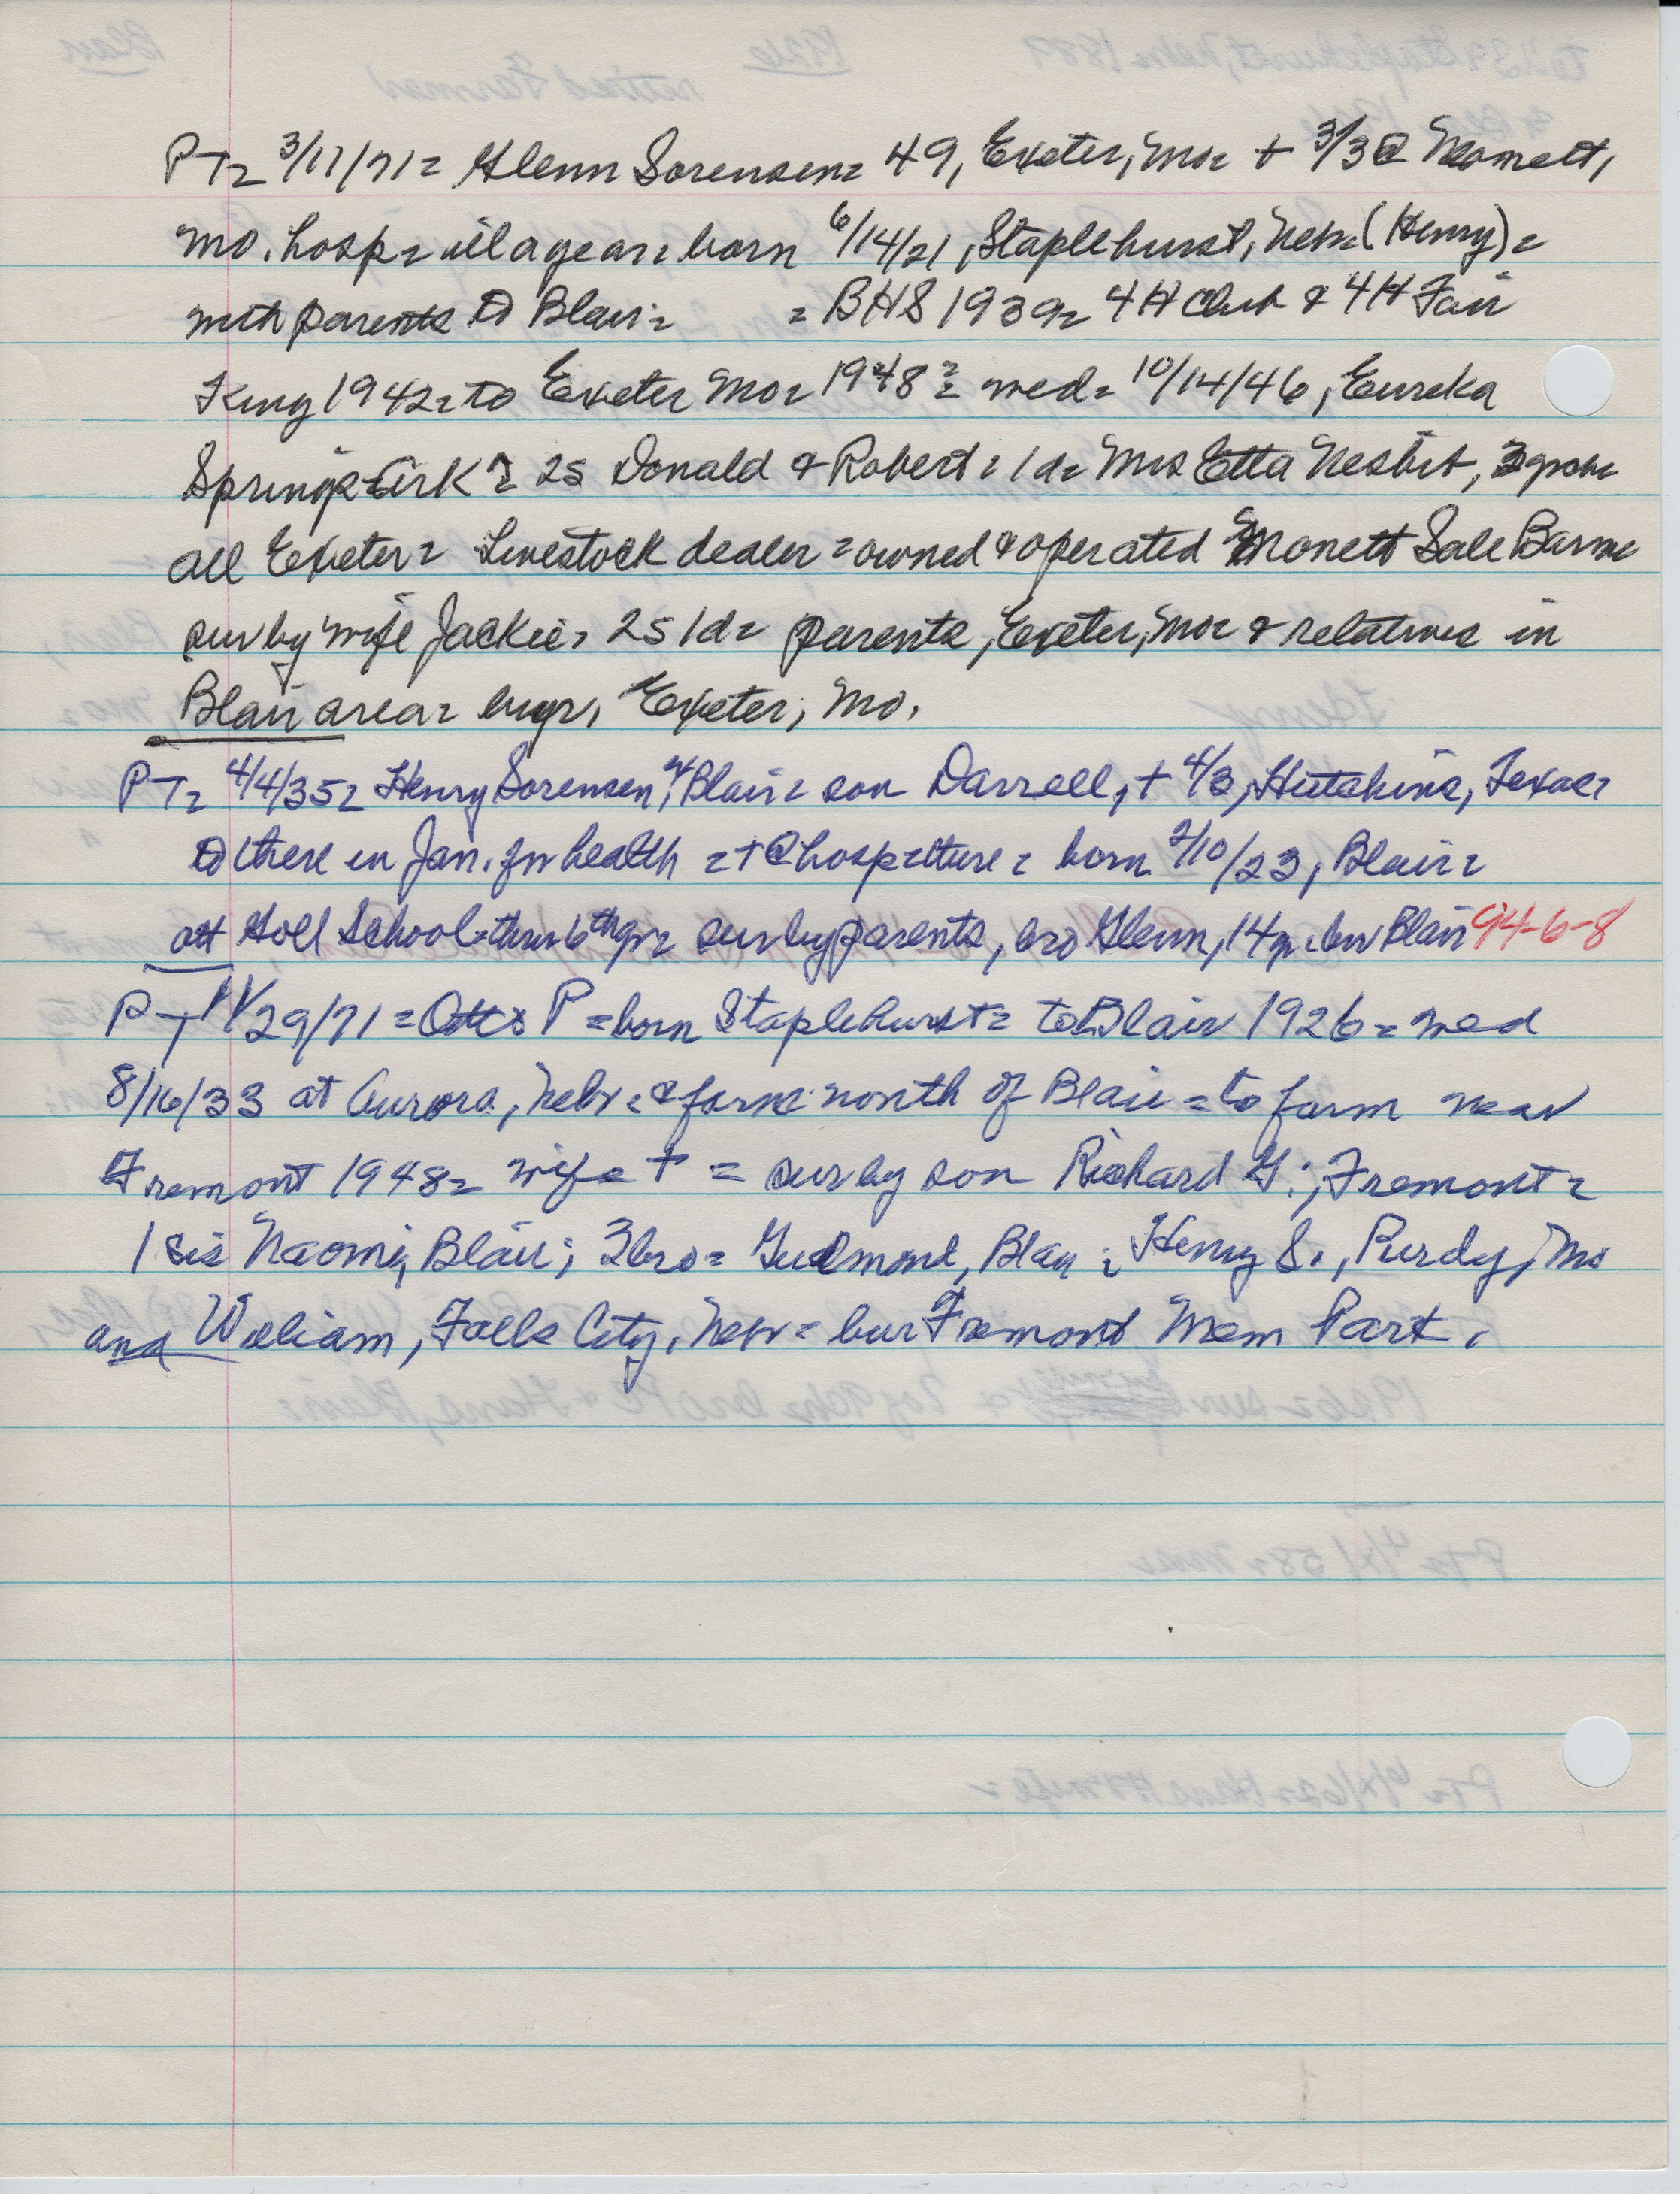 PT= 3/11/71= Glenn Sorensen= 49, Exeter, Mo= + 3/3 @ Monett,
Mo. hosp= ill a year= born 6/14/21, Staplehurst, Nebr= (Henry)=
with parents to Blair= = BHS 1939= 4H Club & 4H Fair
King 1942= to Exeter Mo= 1948= wed= 10/14/46, Eureka
Springs Ark= 2s Donald & Robert= 1d= Mrs Etta Nesbit, 3
all Exeter= Livestock dealer= owned & operated Monett Sale Barn=
sur by wife Jackie, 2s 1d= parents, Exeter, Mo= & relatives in
Blair area= bur, Exeter, Mo.
PT= 4/4/35= Henry Sorensen, Blair= son Darrell, + 4/3, Hutchins, Texas=
to there in Jan. for health =+ @ hosp there= born 2/10/23, Blair=
att Goll School thru 6th gr= sur by parents, bro Glenn, 14 bur Blair 94-6-8
PT 11/29/71= Otto P= born Staplehurst= to Blair 1926= wed
8/16/33 at Aurora, Nebr= & farm north of Blair= to farm near
Fremont 1948= wife + = sur by son Richard G., Fremont=
1 sis Naomi, Blair; 3 bro= Gudmond, Blair; Henry S., Purdy, Mo
and William, Falls City, Nebr= bur Fremont Mem Park.